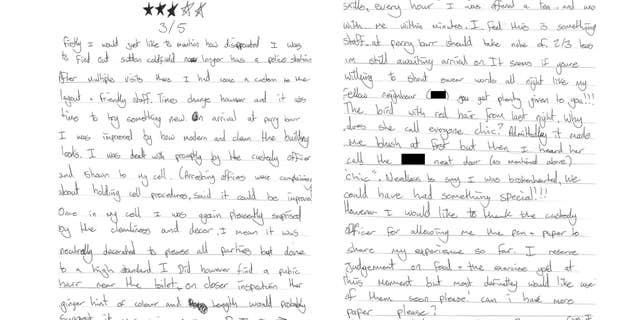 3/5
Firstly I would just like to mention how disappointed I was
to find out sutton coldfield no longer has a police station
After multiple visits there I had come a custom to the
layout + friendly staff. Times change however and it was
time to try something new on arrival at perry barr
I was impressed by how modern and clean the building
looks. I was dealt with promptly by the custody officer
and shown to my cell. (Arresting officers were complaining
about holding cell procedures, said it could be improved
Once in my cell I was again pleasently suprised
by the cleanliness and decor, I mean it was
neutrally decorated to please all parties but done
to a high standard I Did however find a pubic
hair near the toilet, on closer inspection the
ginger hint of colour and length would probably
suggest it
skills, every hour I was offered a tea, and was
with me within minutes. I feel this is something
staff at perry barr should take note of. 2/3 teas
im still awaiting arrival on It seems if youre
willing to shout swear words all night like my
fellow neighbour ( ) you get plenty given to you!!!
The bird with red hair from last night, Why
does she call everyone chic? Admittedley it made
me blush at first but then I heard her
call the next door (as mentiond above)
"chic". Needless to say I was brokenhearted, We
could have had something special!!!
However I would like to thank the custody
officer for allowing me the pen + paper to
share my experience so far. I reserve
Judgement on food + the exercise yard at
this moment but most definetly would like use
of them soon please! can i have more
paper please?